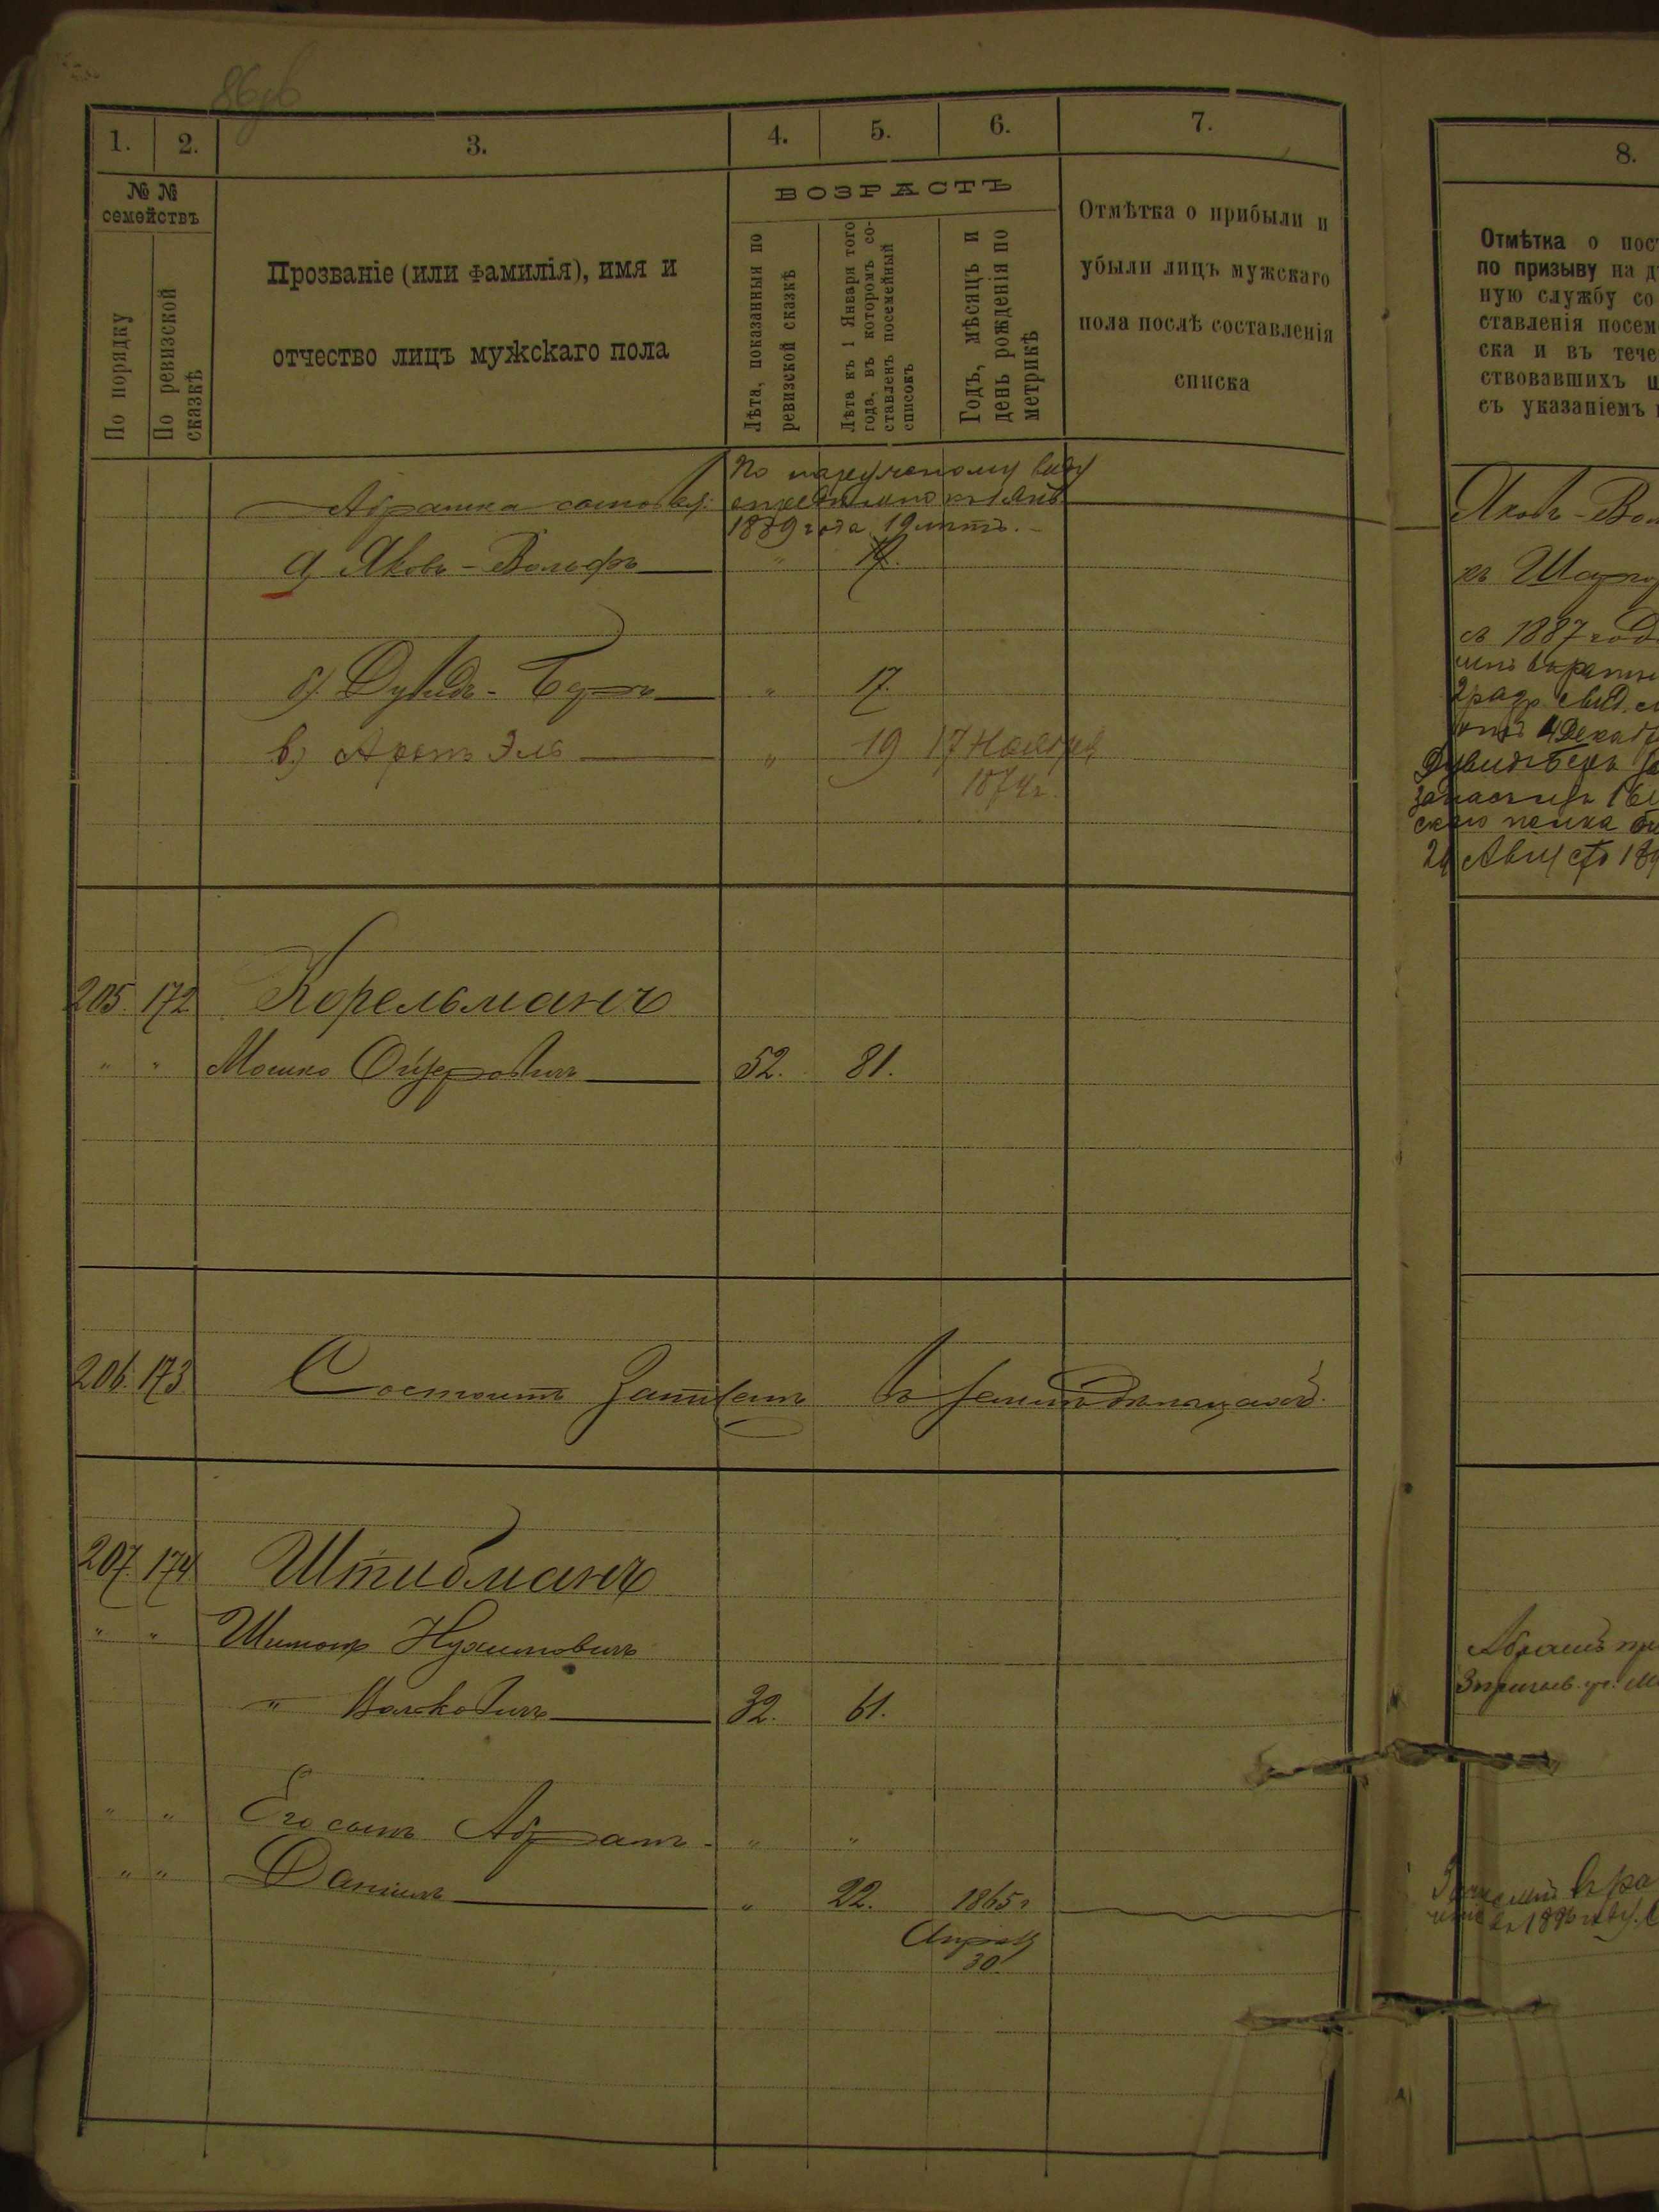 86об
1.
2.
3.
4.
5.
6.
7.
№ №
семействъ
По порядку
По ревизской
сказкѣ
Прозваніе (или фамилія), имя и
отчество лицъ мужскаго пола
ВОЗРАСТЪ
Лѣта, показанныя по
ревизской сказкѣ
Лѣта къ 1 Января того
года, въ которомъ со-
ставленъ посемейный
списокъ
Годъ, мѣсяцъ и
день рожденія по
метрикѣ
Отмѣтка о прибыли и
убыли лицъ мужскаго
пола послѣ составленія
списка
По наружному виду
Абрашка сыновья:
опредѣлено къ 1 Янв.
1879 года 19 лѣтъ. —
а) Яковъ - Вольфъ " 17.
б) Дувидъ - Беръ " 17.
в) Аронъ Эль " 19 17 Ноября
1874 г.
205. 172 Корельманъ
" " Мошко Ойзеровичъ 52. 81.
206. 173 Состоитъ записанъ въ земледѣльцахъ.
207. 174 Штибманъ
" " Шимонъ Нухимовичъ
" Волковичъ 32. 61.
" " Его сынъ Абрамъ - " "
" " Даніилъ " 22. 1865 г
Апрѣля
30
8.
Отмѣтка о пос
по призыву на д
ную службу со
ставленія посем
ска и въ тече
ствовавшихъ
съ указаніемъ
Яковъ - Вол
къ
съ 1887 год
4 Декабр
Дувидъ Беръ
Августа 189
Абрамъ